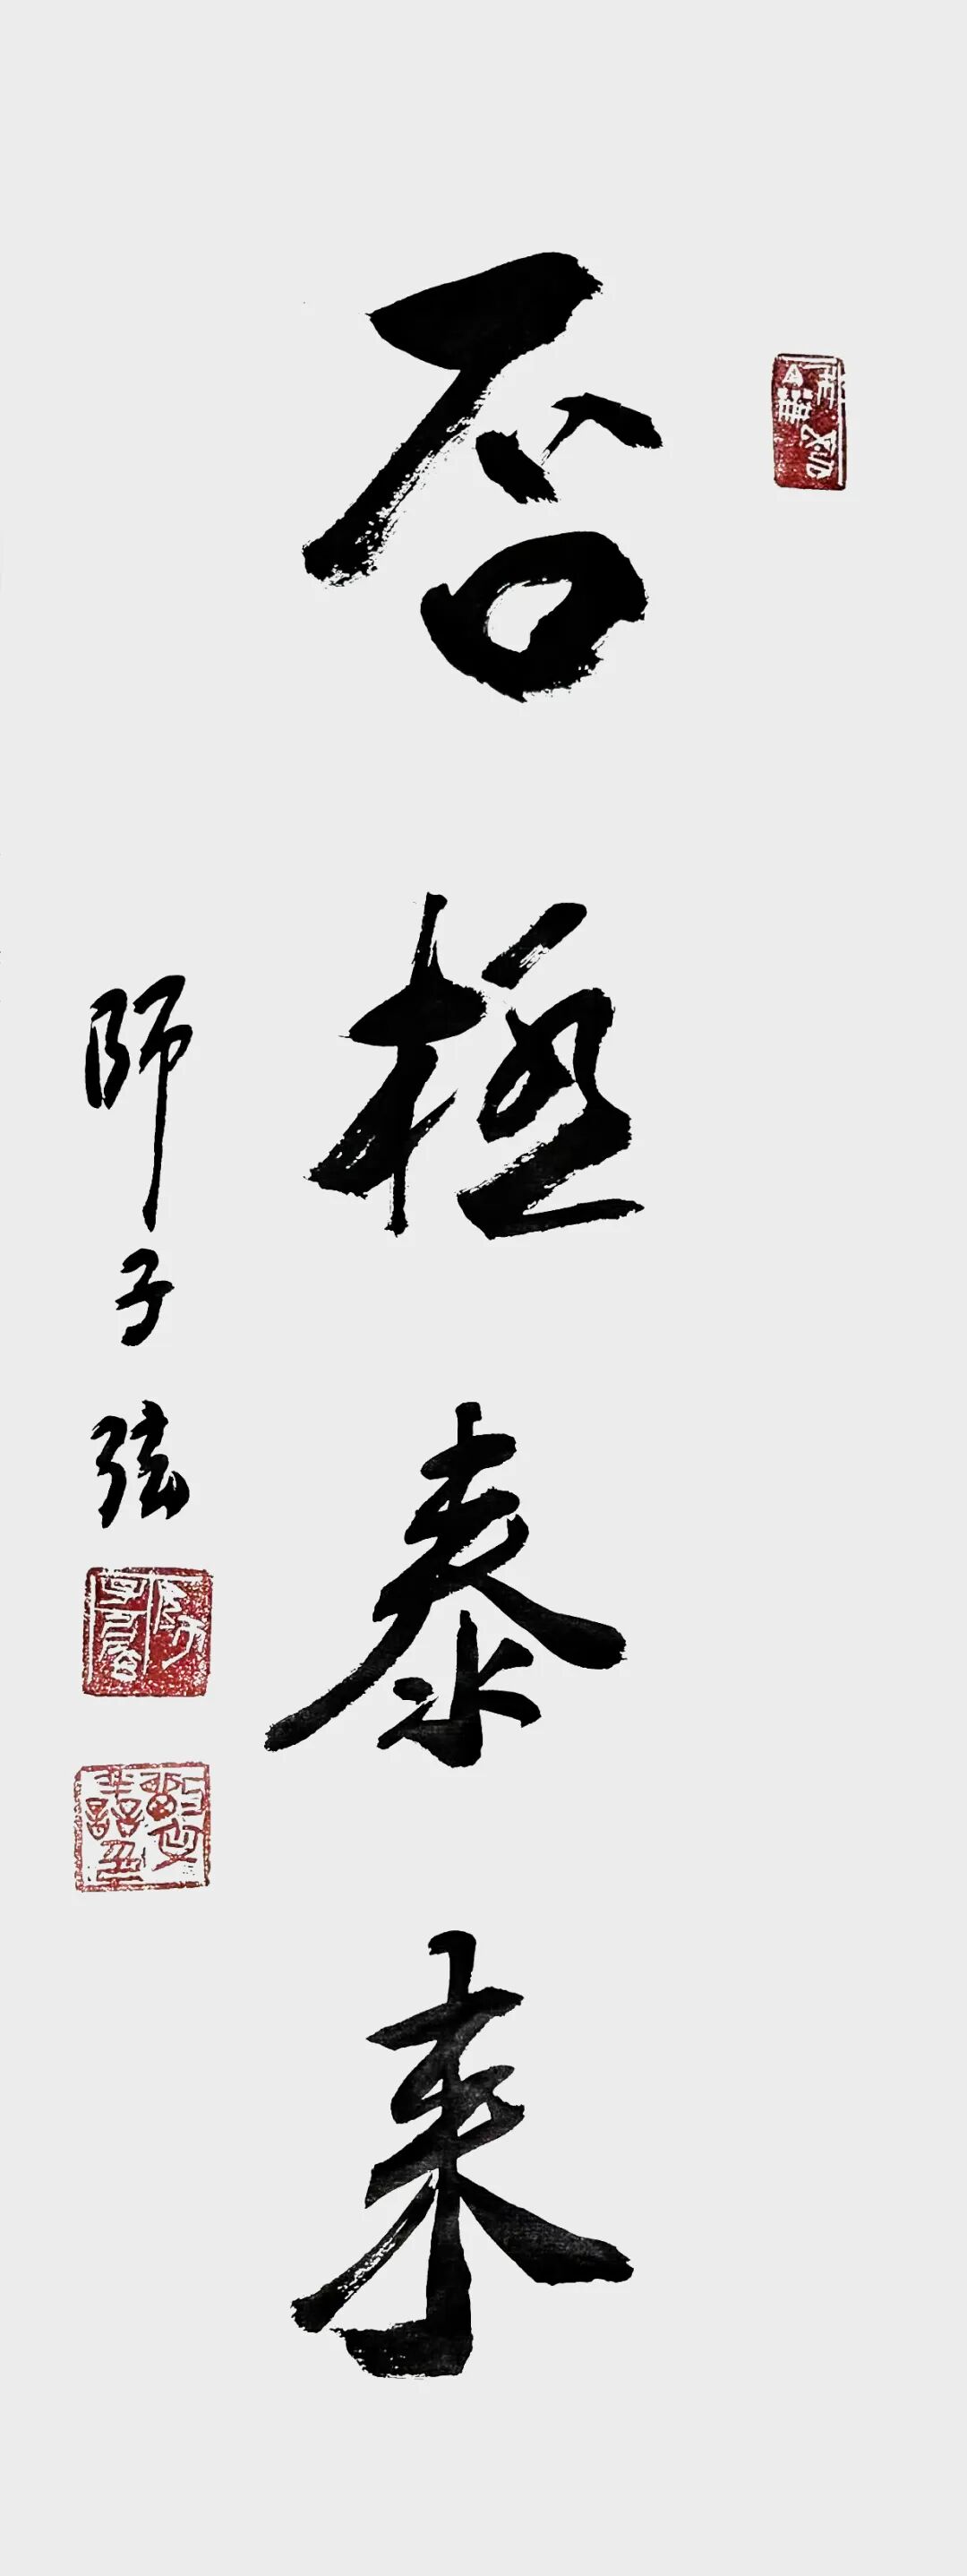 否極泰来
師子弦